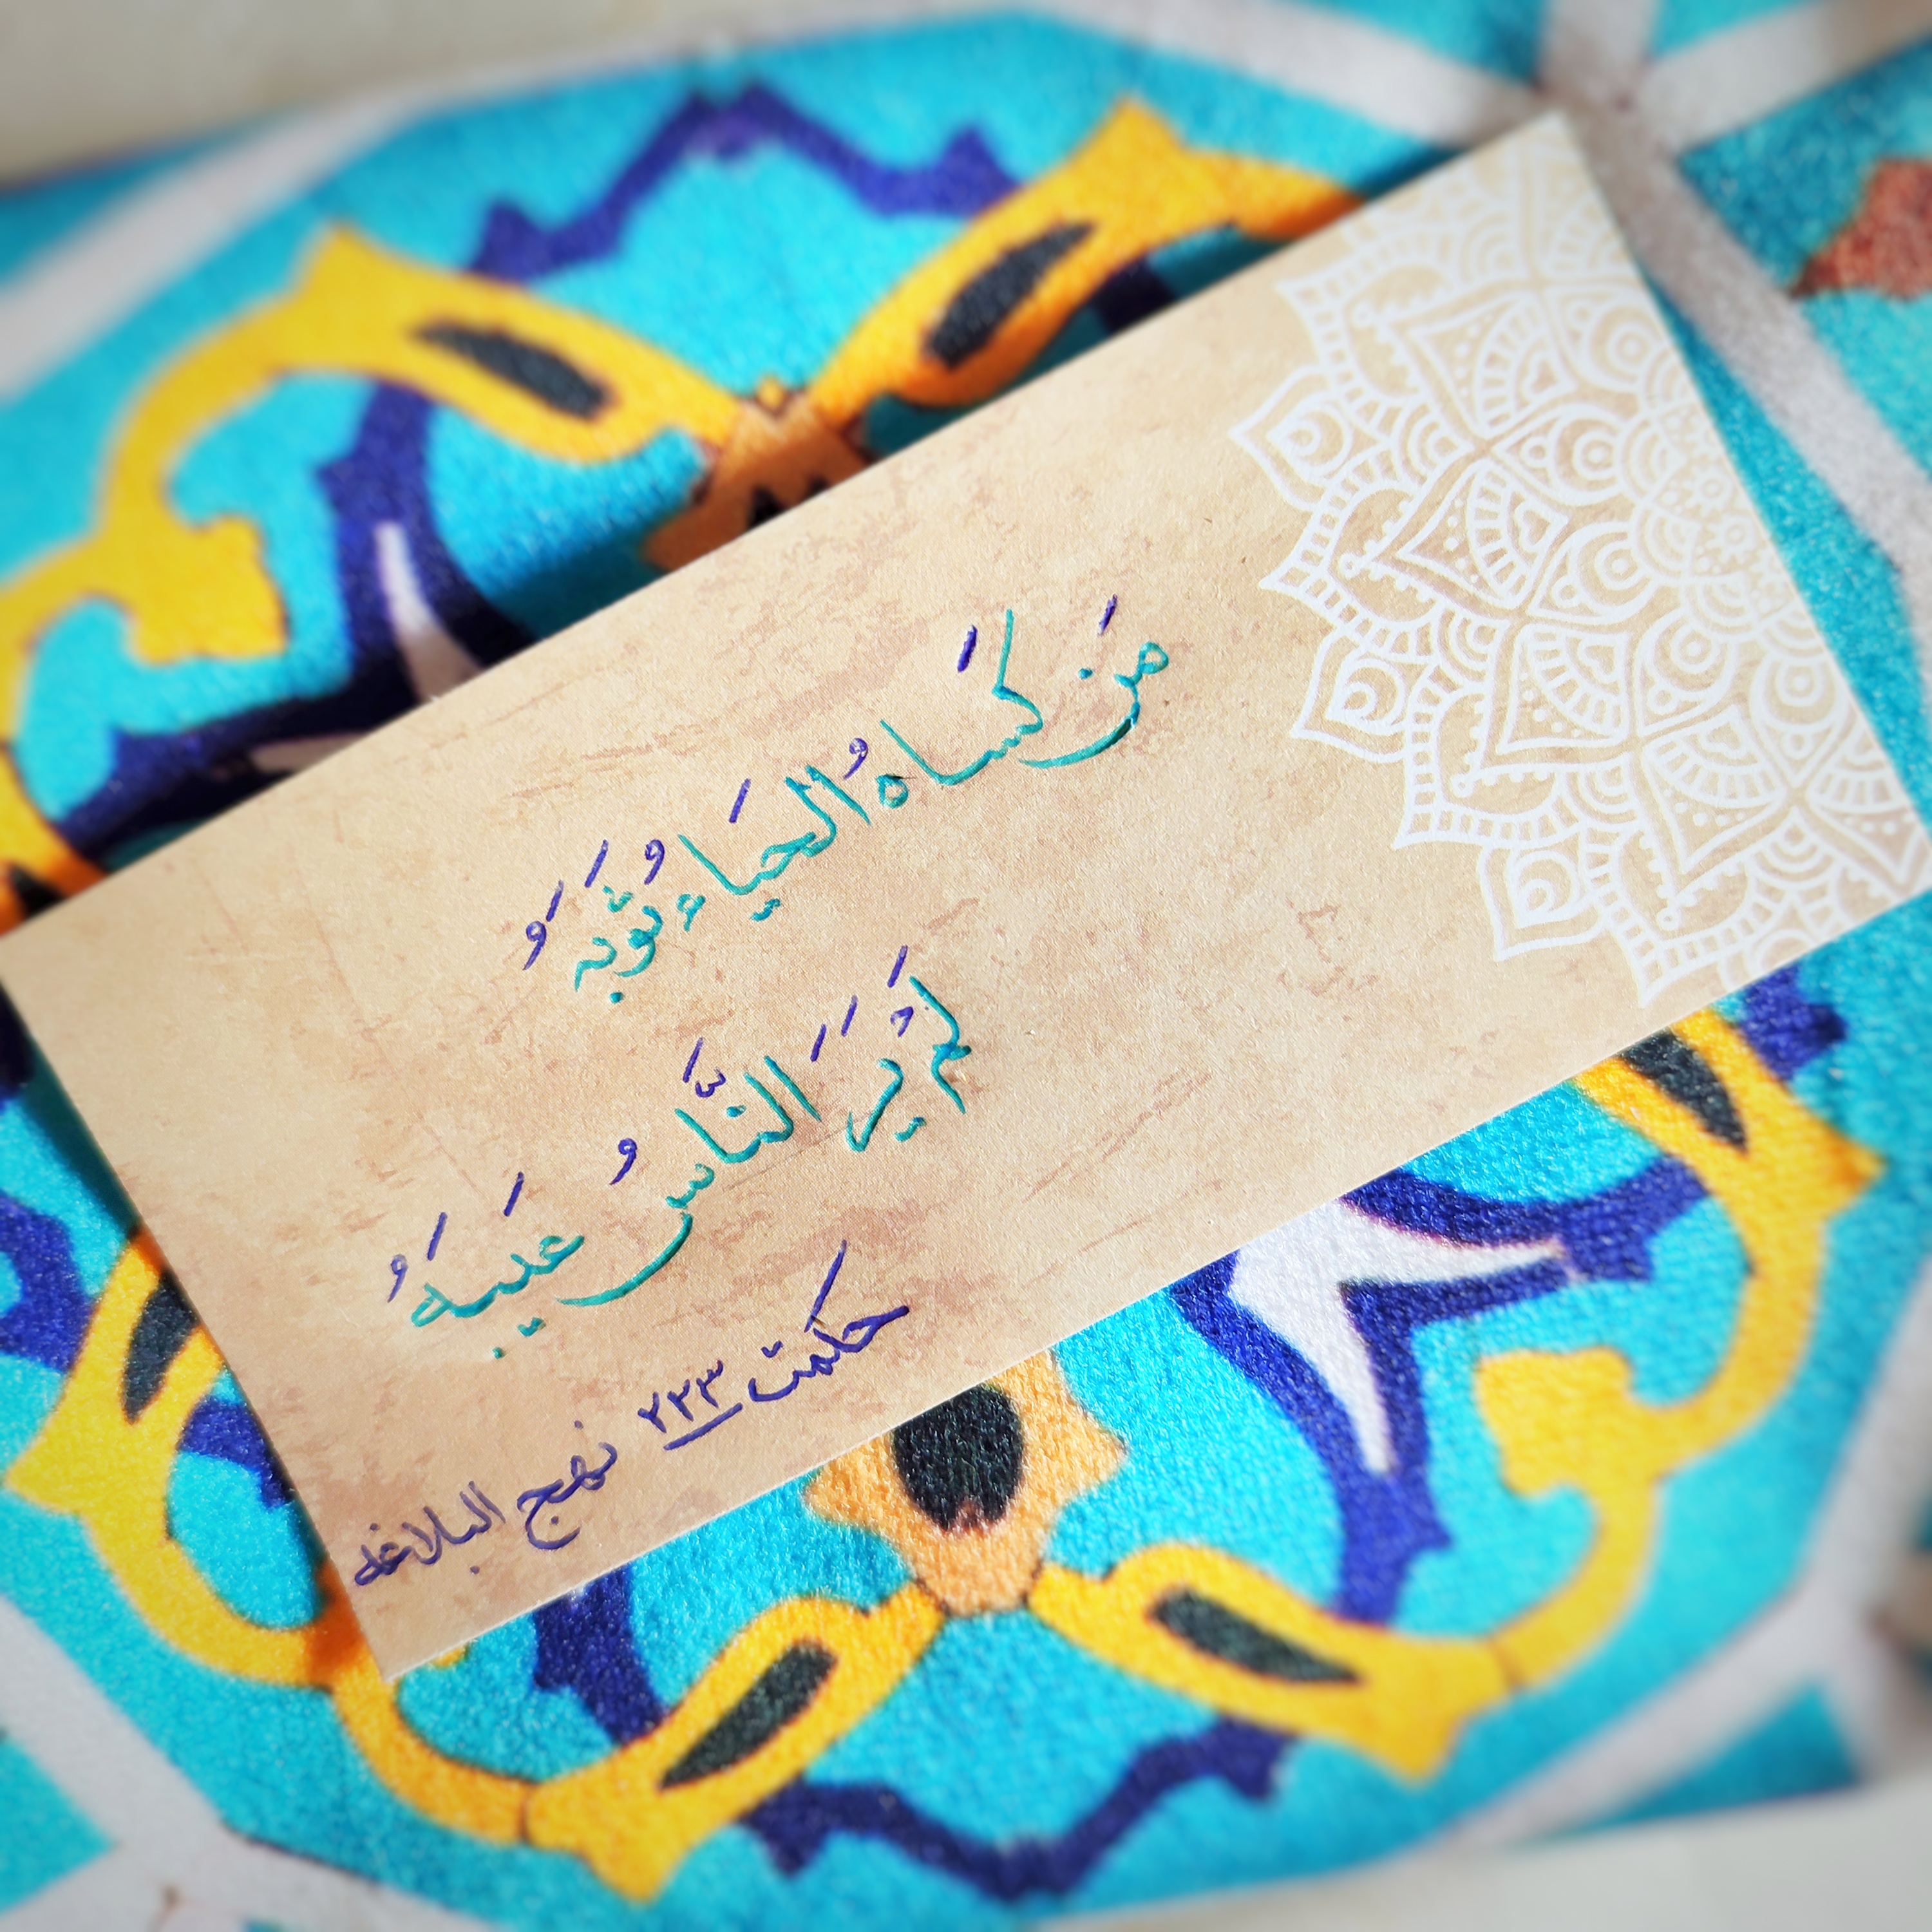 مَن کَساهُ الحَیاءُ ثَوبَهُ
لَم یَرَ النّاسُ عَیبَهُ
حکمت ۲۲۳ نهج البلاغه